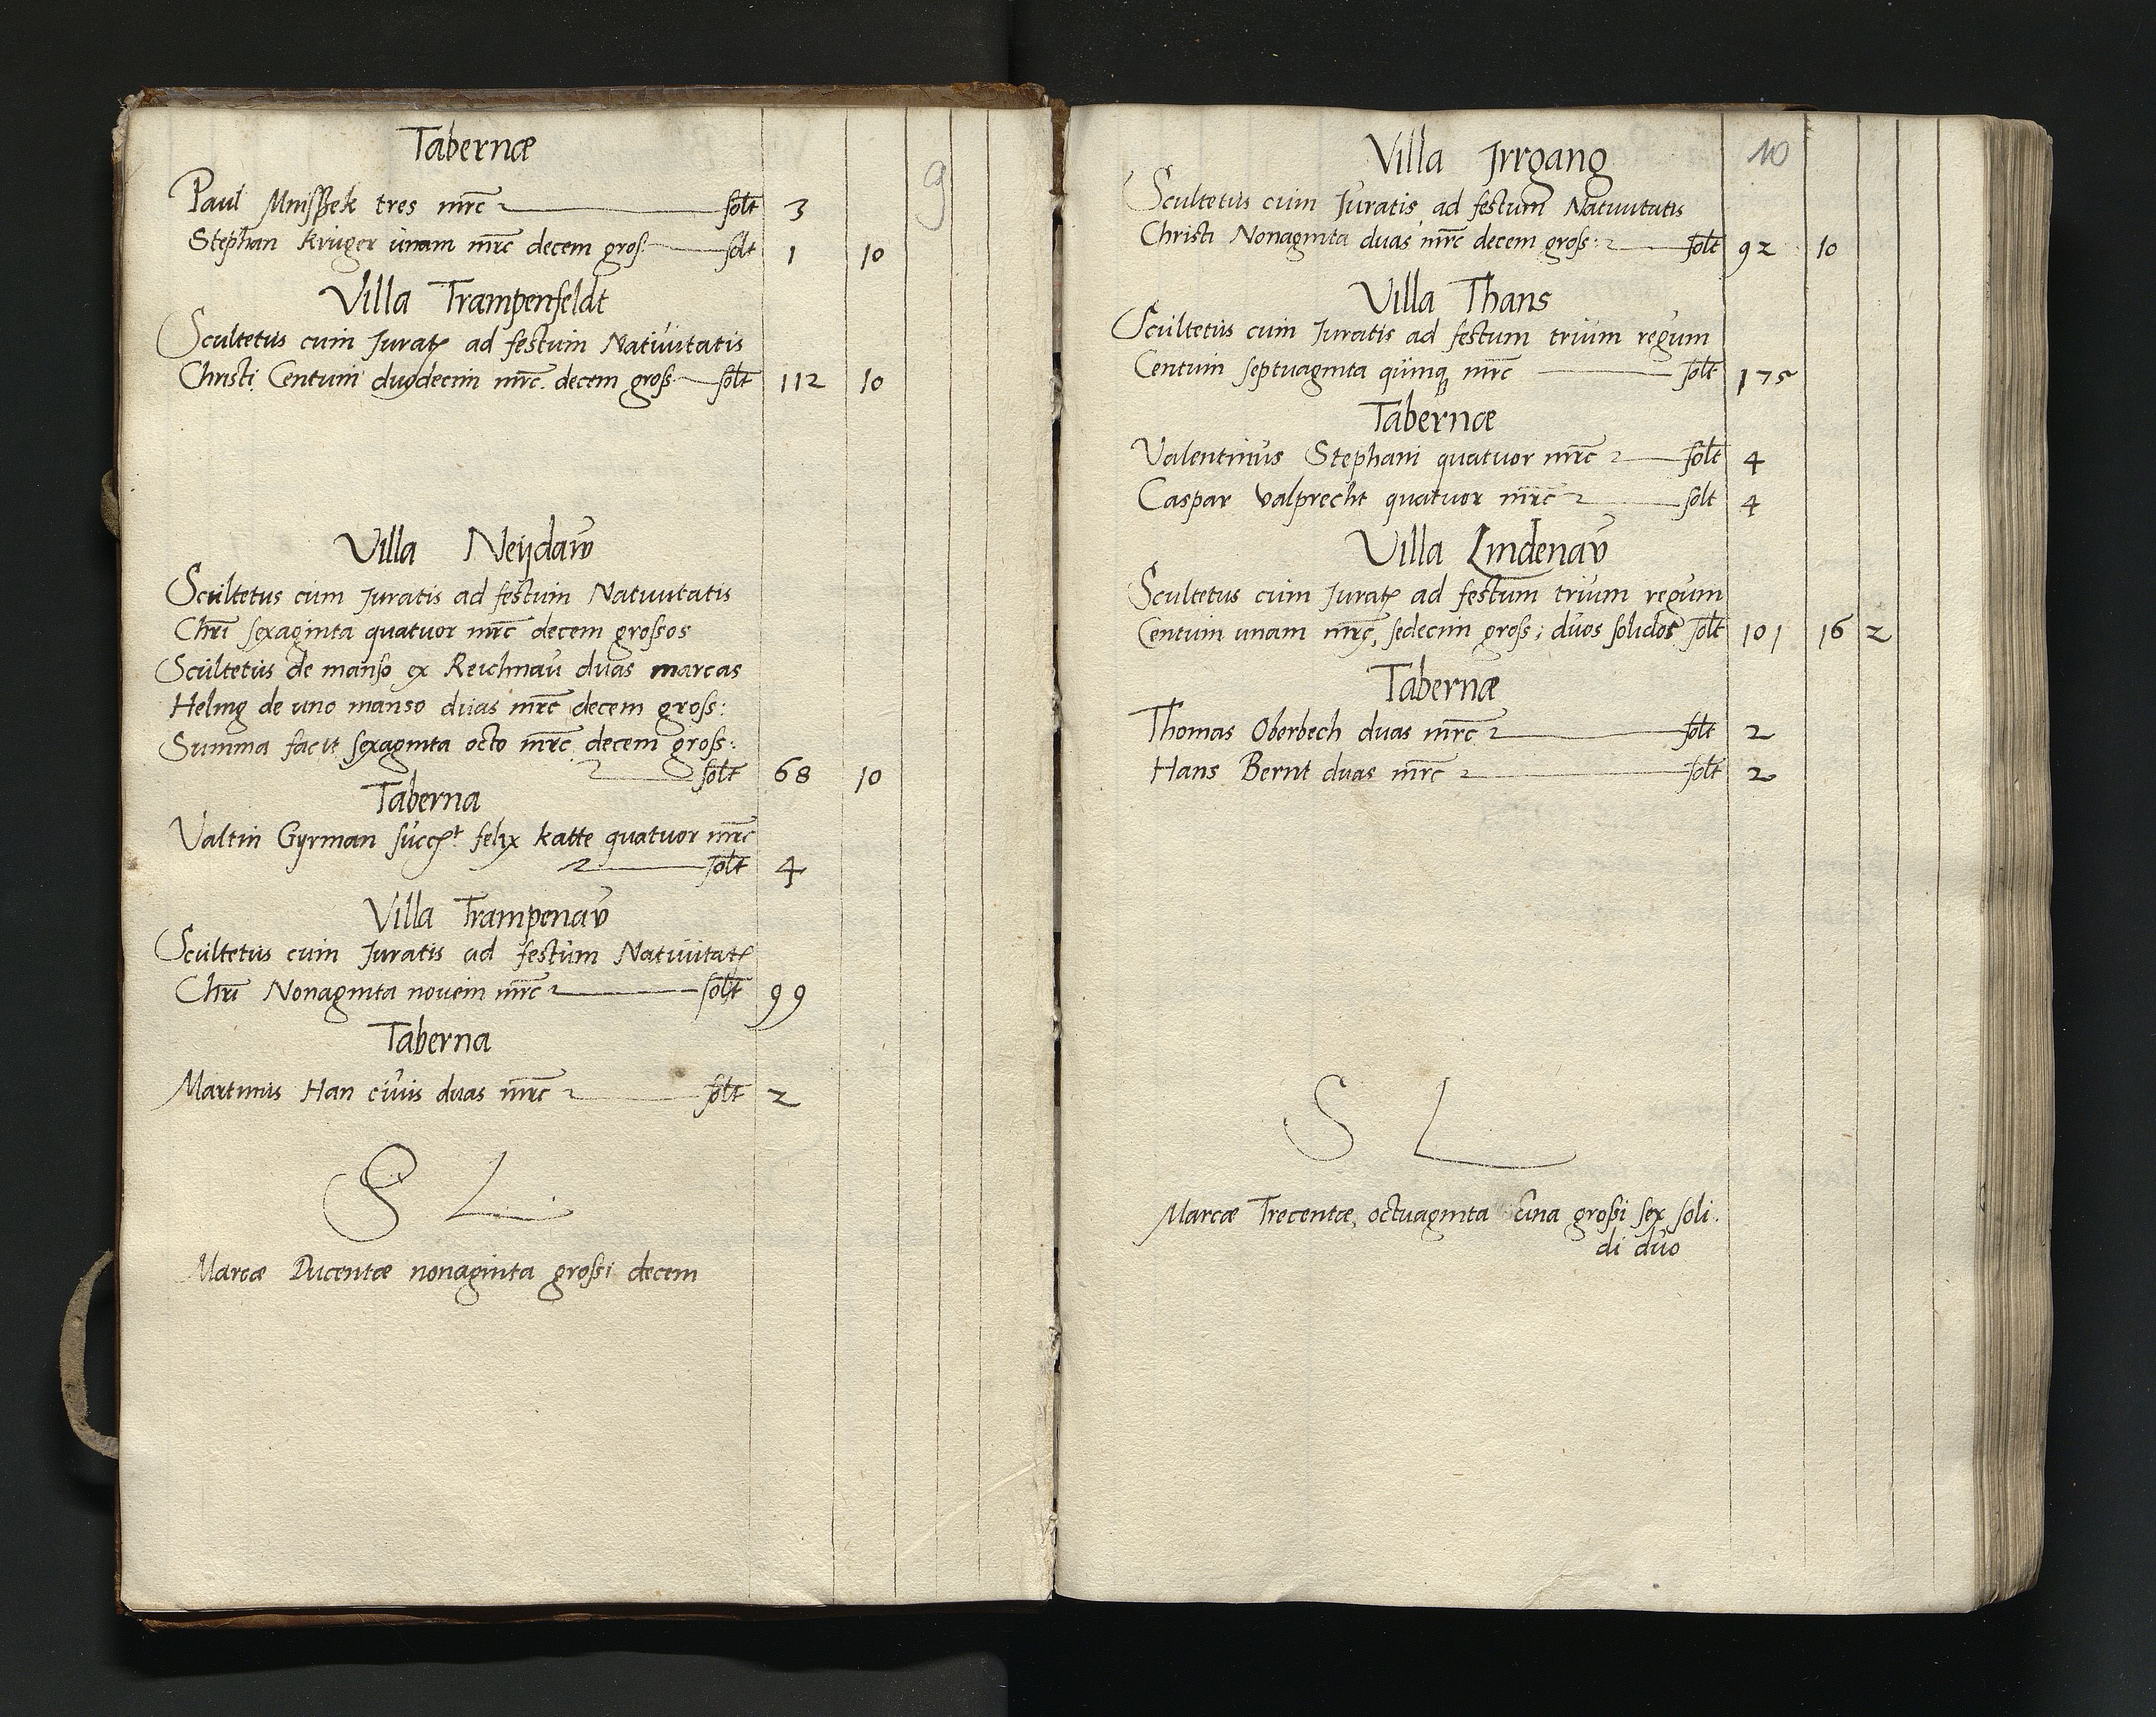 Tabernæ
9
Paul Mnisßek tres mrc solt 3
Stephan Krüger unam mrc decem gros: solt 1 10
Villa Trampenfeldt
Scultetus cum Jurat ad festum Natiuitatis
Christi Centum duodecim mrc. decem gross solt 112 10
Villa Neÿdaw
Scultetus cum Juratis ad festum Natiuitatis
Chri sexaginta quatuor mrc decem grossos
Scultetus de manso ex Reichnau duas marcas
Helmg de uno manso duas mrc decem gross:
Summa facit sexaginta octo mrc decem gross:
solt 68 10
Taberna
Valtin Gyrman felix katte quatuor mrc
solt 4
Villa Trampenaw
Scultetus cum Juratis ad festum Natiuitat
Chri Nonaginta nouem mrc solt 99
Taberna
Martinus Han ciuis duas mrc solt 2
S L
Marcæ Ducentæ nonaginta grossi decem
Villa Jrrgang
10
Scultetus cum Juratis ad festum Natiuitatis
Christi Nonaginta duas mrc decem gross: solt 92 10
Villa Thans
Scultetus cum Juratis ad festum trium regum
Centum septuaginta quinq mrc solt 175
Tabernæ
Valentinus Stephani quatuor mrc solt 4
Caspar Valprecht quatuor mrc solt 4
Villa Lindenaw
Scultetus cum Jurat ad festum trium regum
Centum unam mrc, sedecim gross; duos solidos solt 101 16 2
Tabernæ
Thomas Oberbech duas mrc solt 2
Hans Bernt duas mrc solt 2
S L
Marcæ Trecentæ, octuaginta una grossi sex soli.
di duo